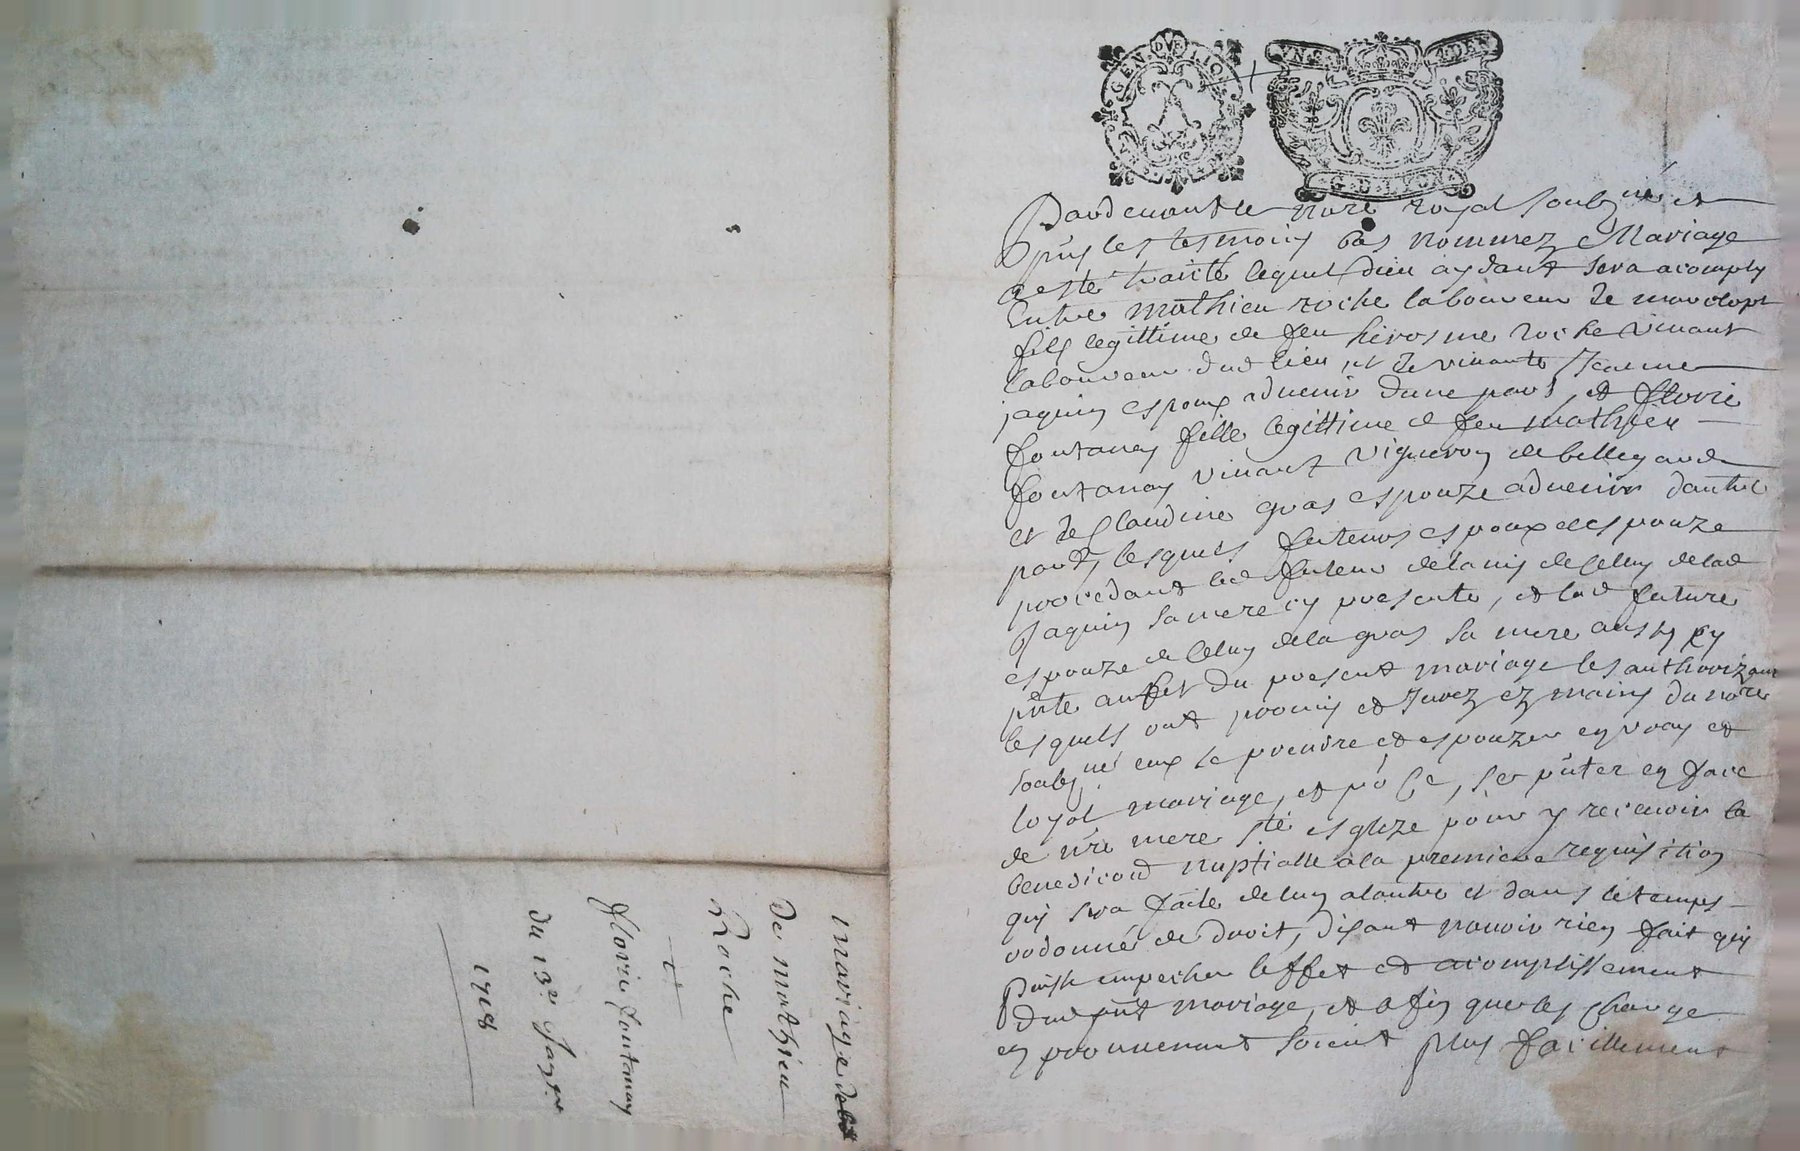 GEN DV LIO
VN S A DEN
G D LYON
Pardevant le nore royal soubzné et
puis les tesmoins bas nommez Mariage
a esté traité lequel dieu aydant sera acomply
Entre mathieu roche laboureur de
fils legittime de feu hierosme roche vivant
laboureur dud lieu et de vivante Jeanne
jaquin espoux advenir dune part, et florie
fontanay fille legittime de feu mathieu
fontanay vivant vigneron de bellegarde
et de Claudine gras espouze advenir dautre
part, lesquels futeurs espoux et espouze
procedant led futeur de lavis de celluy de lad
Jaquin sa mere cy presente, et lad future
espouze de celuy de la gras sa mere aussy cy
pnte au fet du present mariage les authorizant
lesquels ont promis et Jurez ez mains du nore
soubzné eux se prendre et espouzer en vray et
loyal mariage, et po ce, se pnter en face
de nre mere ste esglize pour y recevoir la
benediction nuptialle a la premiere requisition
qui sera faite de lun a lautre et dans le temps
ordonné de droit, disant navoir rien fait qui
Puisse empecher leffet et acomplissement
dud pnt mariage, et afin que les charge
en provenant soient plus facillement
mariage
De mathieu
Roche
et
florie fontanay
du 13e Janvier
1708